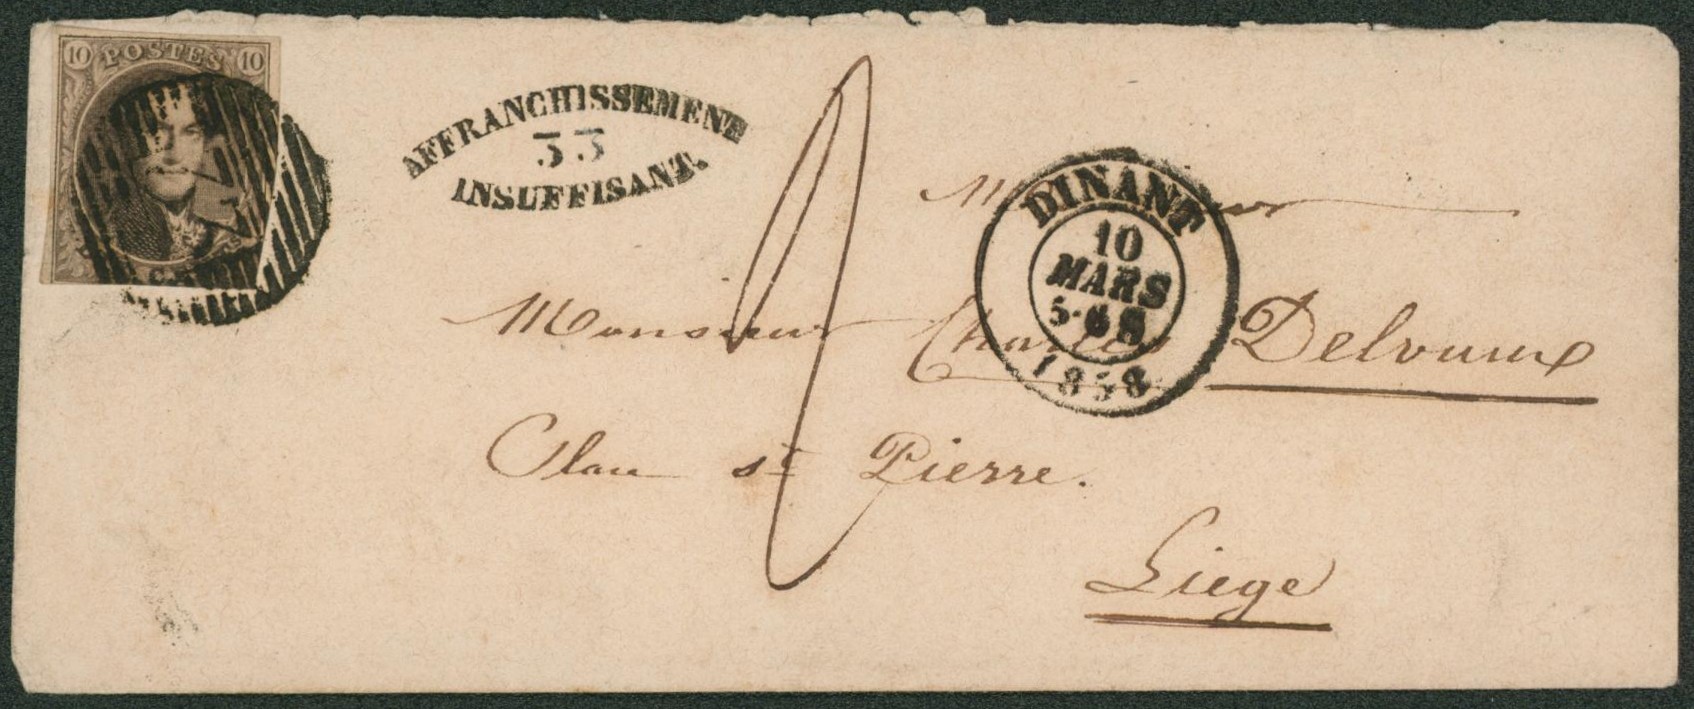 10 POSTES 10
AFFRANCHISSEMENT
33
INSUFFISANT.
DINANT
10
MARS
5-6S
1858
Monsieur
Monsieur Charles Delvaux
Place st Pierre.
Liege